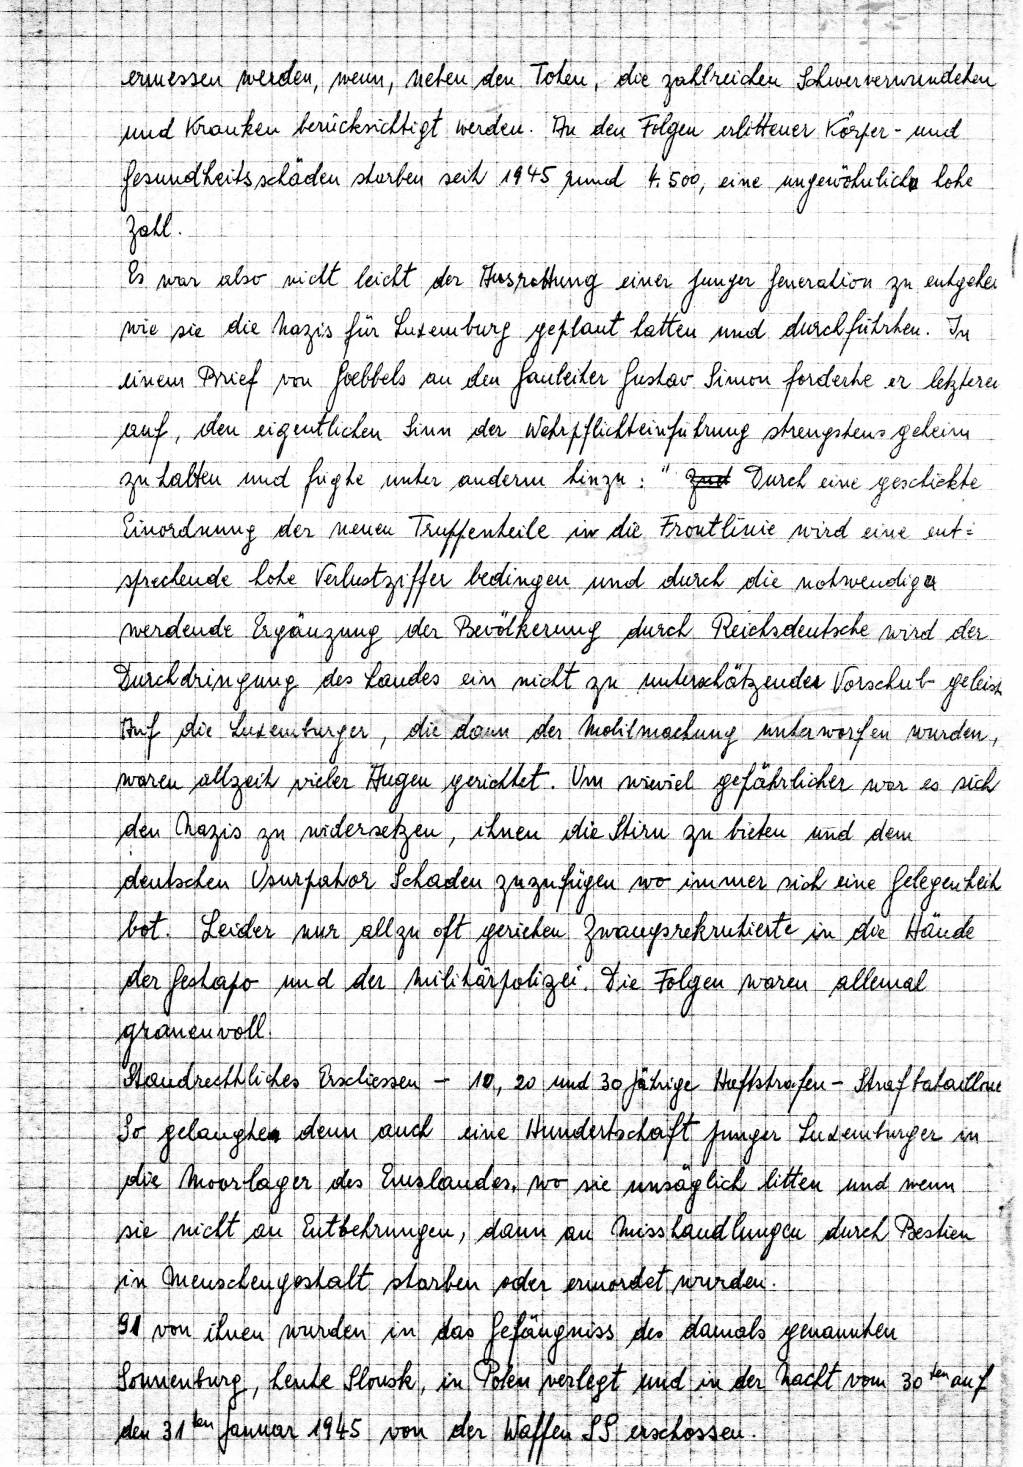 ermessen werden, wenn, neben den Toten, die zahlreichen Schwerverwundeten
und Kranken berücksichtigt werden. An den Folgen erlittener Körper- und
Gesundheitsschäden starben seit 1945 rund 4.500, eine ungewöhnlich hohe
Zahl.
Es war also nicht leicht der Ausrottung einer junger Generation zu entgehen
wie sie die Nazis für Luxemburg geplant hatten und durchführten. In
einem Brief von Goebbels an den Gauleiter Gustav Simon forderte er letzteren
auf, den eigentlichen Sinn der Wehrpflichteinführung strengstens geheim
zu halten und fügte unter anderm hinzu: " Durch eine geschickte
Einordnung der neuen Truppenteile in die Frontlinie wird eine ent=
sprechende hohe Verlustziffer bedingen und durch die notwendig
werdende Ergänzung der Bevölkerung durch Reichsdeutsche wird der
Durchdringung des Landes ein nicht zu unterschätzender Vorschub geleist
Auf die Luxemburger, die dann der Mobilmachung unterworfen wurden,
waren allzeit vieler Augen gerichtet. Um wieviel gefährlicher war es sich
den Nazis zu widersetzen, ihnen die Stirn zu bieten und dem
deutschen Usurpator Schaden zuzufügen wo immer sich eine Gelegenheit
bot. Leider nur allzu oft gerieten Zwangsrekrutierte in die Hände
der Gestapo und der Militärpolizei. Die Folgen waren allemal
grauenvoll.
Standrechtliches Erschiessen - 10, 20 und 30 jährige Haftstrafen - Strafbataillone
So gelangte denn auch eine Hundertschaft junger Luxemburger in
die Moorlager des Emslandes, wo sie unsäglich litten und wenn
sie nicht an Entbehrungen, dann an Misshandlungen durch Bestien
in Menschengestalt starben oder ermordet wurden.
91 von ihnen wurden in das Gefängniss des damals genannten
Sonnenburg, heute Slonsk, in Polen verlegt und in der Nacht vom 30ten auf
den 31ten Januar 1945 von der Waffen SS erschossen.